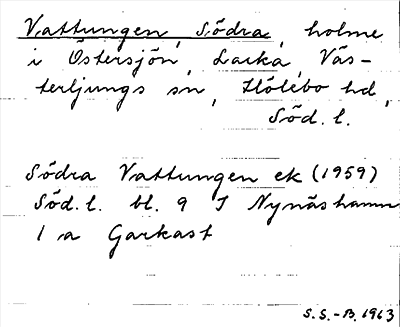 Vattungen, Södra, holme
i Östersjön, Lacka, Väs-
terljungs sn, Hölebo hd,
Söd. l.
Södra Vattungen ek (1959)
Söd. l. bl. 9 I Nynäshamn
1 a Garkast
S.S.-B. 1963